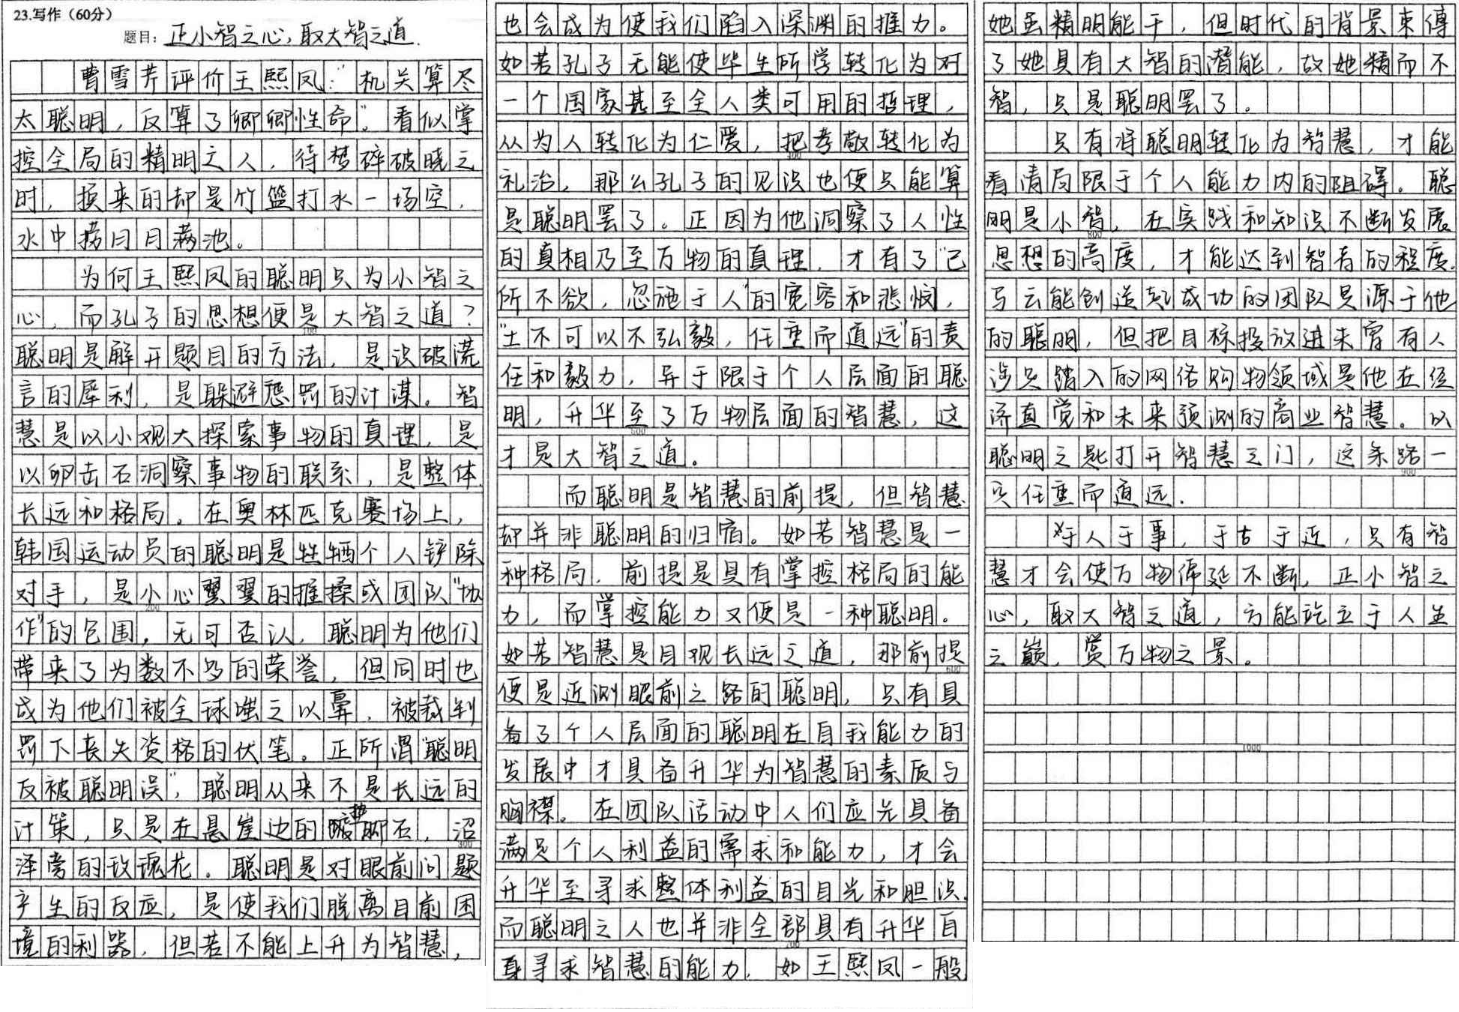 23.写作（60分）
题目：正小智之心，取大智之道.
曹雪芹评价王熙凤："机关算尽
太聪明，反算了卿卿性命"。看似掌
控全局的精明之人，待梦碎破晓之
时，换来的却是竹篮打水一场空，
水中捞月月满池。
为何王熙凤的聪明只为小智之
心，而孔子的思想便是大智之道？
聪明是解开题目的方法，是识破谎
言的犀利，是躲避惩罚的计谋。智
慧是以小观大探索事物的真理，是
以卵击石洞察事物的联系，是整体、
长远和格局。在奥林匹克赛场上，
韩国运动员的聪明是牲牺个人铲除
对手，是小心翼翼的推搡或团队"协
作"的包围，无可否认，聪明为他们
带来了为数不多的荣誉，但同时也
成为他们被全球嗤之以鼻，被裁判
罚下丧失资格的伏笔。正所谓"聪明
反被聪明误"，聪明从来不是长远的
计策，只是在悬崖边的垫脚石，沼
泽旁的玫瑰花。聪明是对眼前问题
产生的反应，是使我们脱离目前困
境的利器，但若不能上升为智慧，
也会成为使我们陷入深渊的推力。
如若孔子无能使毕生所学转化为对
一个国家甚至全人类可用的哲理，
从为人转化为仁爱，把孝敬转化为
礼治，那么孔子的见识也便只能算
是聪明罢了。正因为他洞察了人性
的真相乃至万物的真理，才有了"己
所不欲，忽施于人"的宽容和悲悯，
"士不可以不弘毅，任重而道远"的责
任和毅力，异于限于个人层面的聪
明，升华至了万物层面的智慧，这
才是大智之道。
而聪明是智慧的前提，但智慧
却并非聪明的归宿。如若智慧是一
种格局，前提是具有掌控格局的能
力，而掌控能力又便是一种聪明。
如若智慧是目观长远之道，那前提
便是近测眼前之路的聪明，只有具
备了个人层面的聪明在自我能力的
发展中才具备升华为智慧的素质与
胸襟。在团队活动中人们应先具备
满足个人利益的需求和能力，才会
升华至寻求整体利益的目光和胆识，
而聪明之人也并非全部具有升华自
身寻求智慧的能力，如王熙凤一般
她虽精明能干，但时代的背景束缚
了她具有大智的潜能，故她精而不
智，只是聪明罢了。
只有将聪明转化为智慧，才能
看清局限于个人能力内的阻碍。聪
明是小智，在实践和知识不断发展
思想的高度，才能达到智者的程度。
马云能创造如成功的团队是源于他
的聪明，但把目标投放进未曾有人
涉足踏入的网络购物领域是他在经
济直觉和未来预测的商业智慧。以
聪明之匙打开智慧之门，这条路一
灾任重而道远.
对于人于事，于古于近，只有智
慧才会使万物绵延不断，正小智之
心，取大智之道，方能屹立于人生
之巅，赏万物之景。